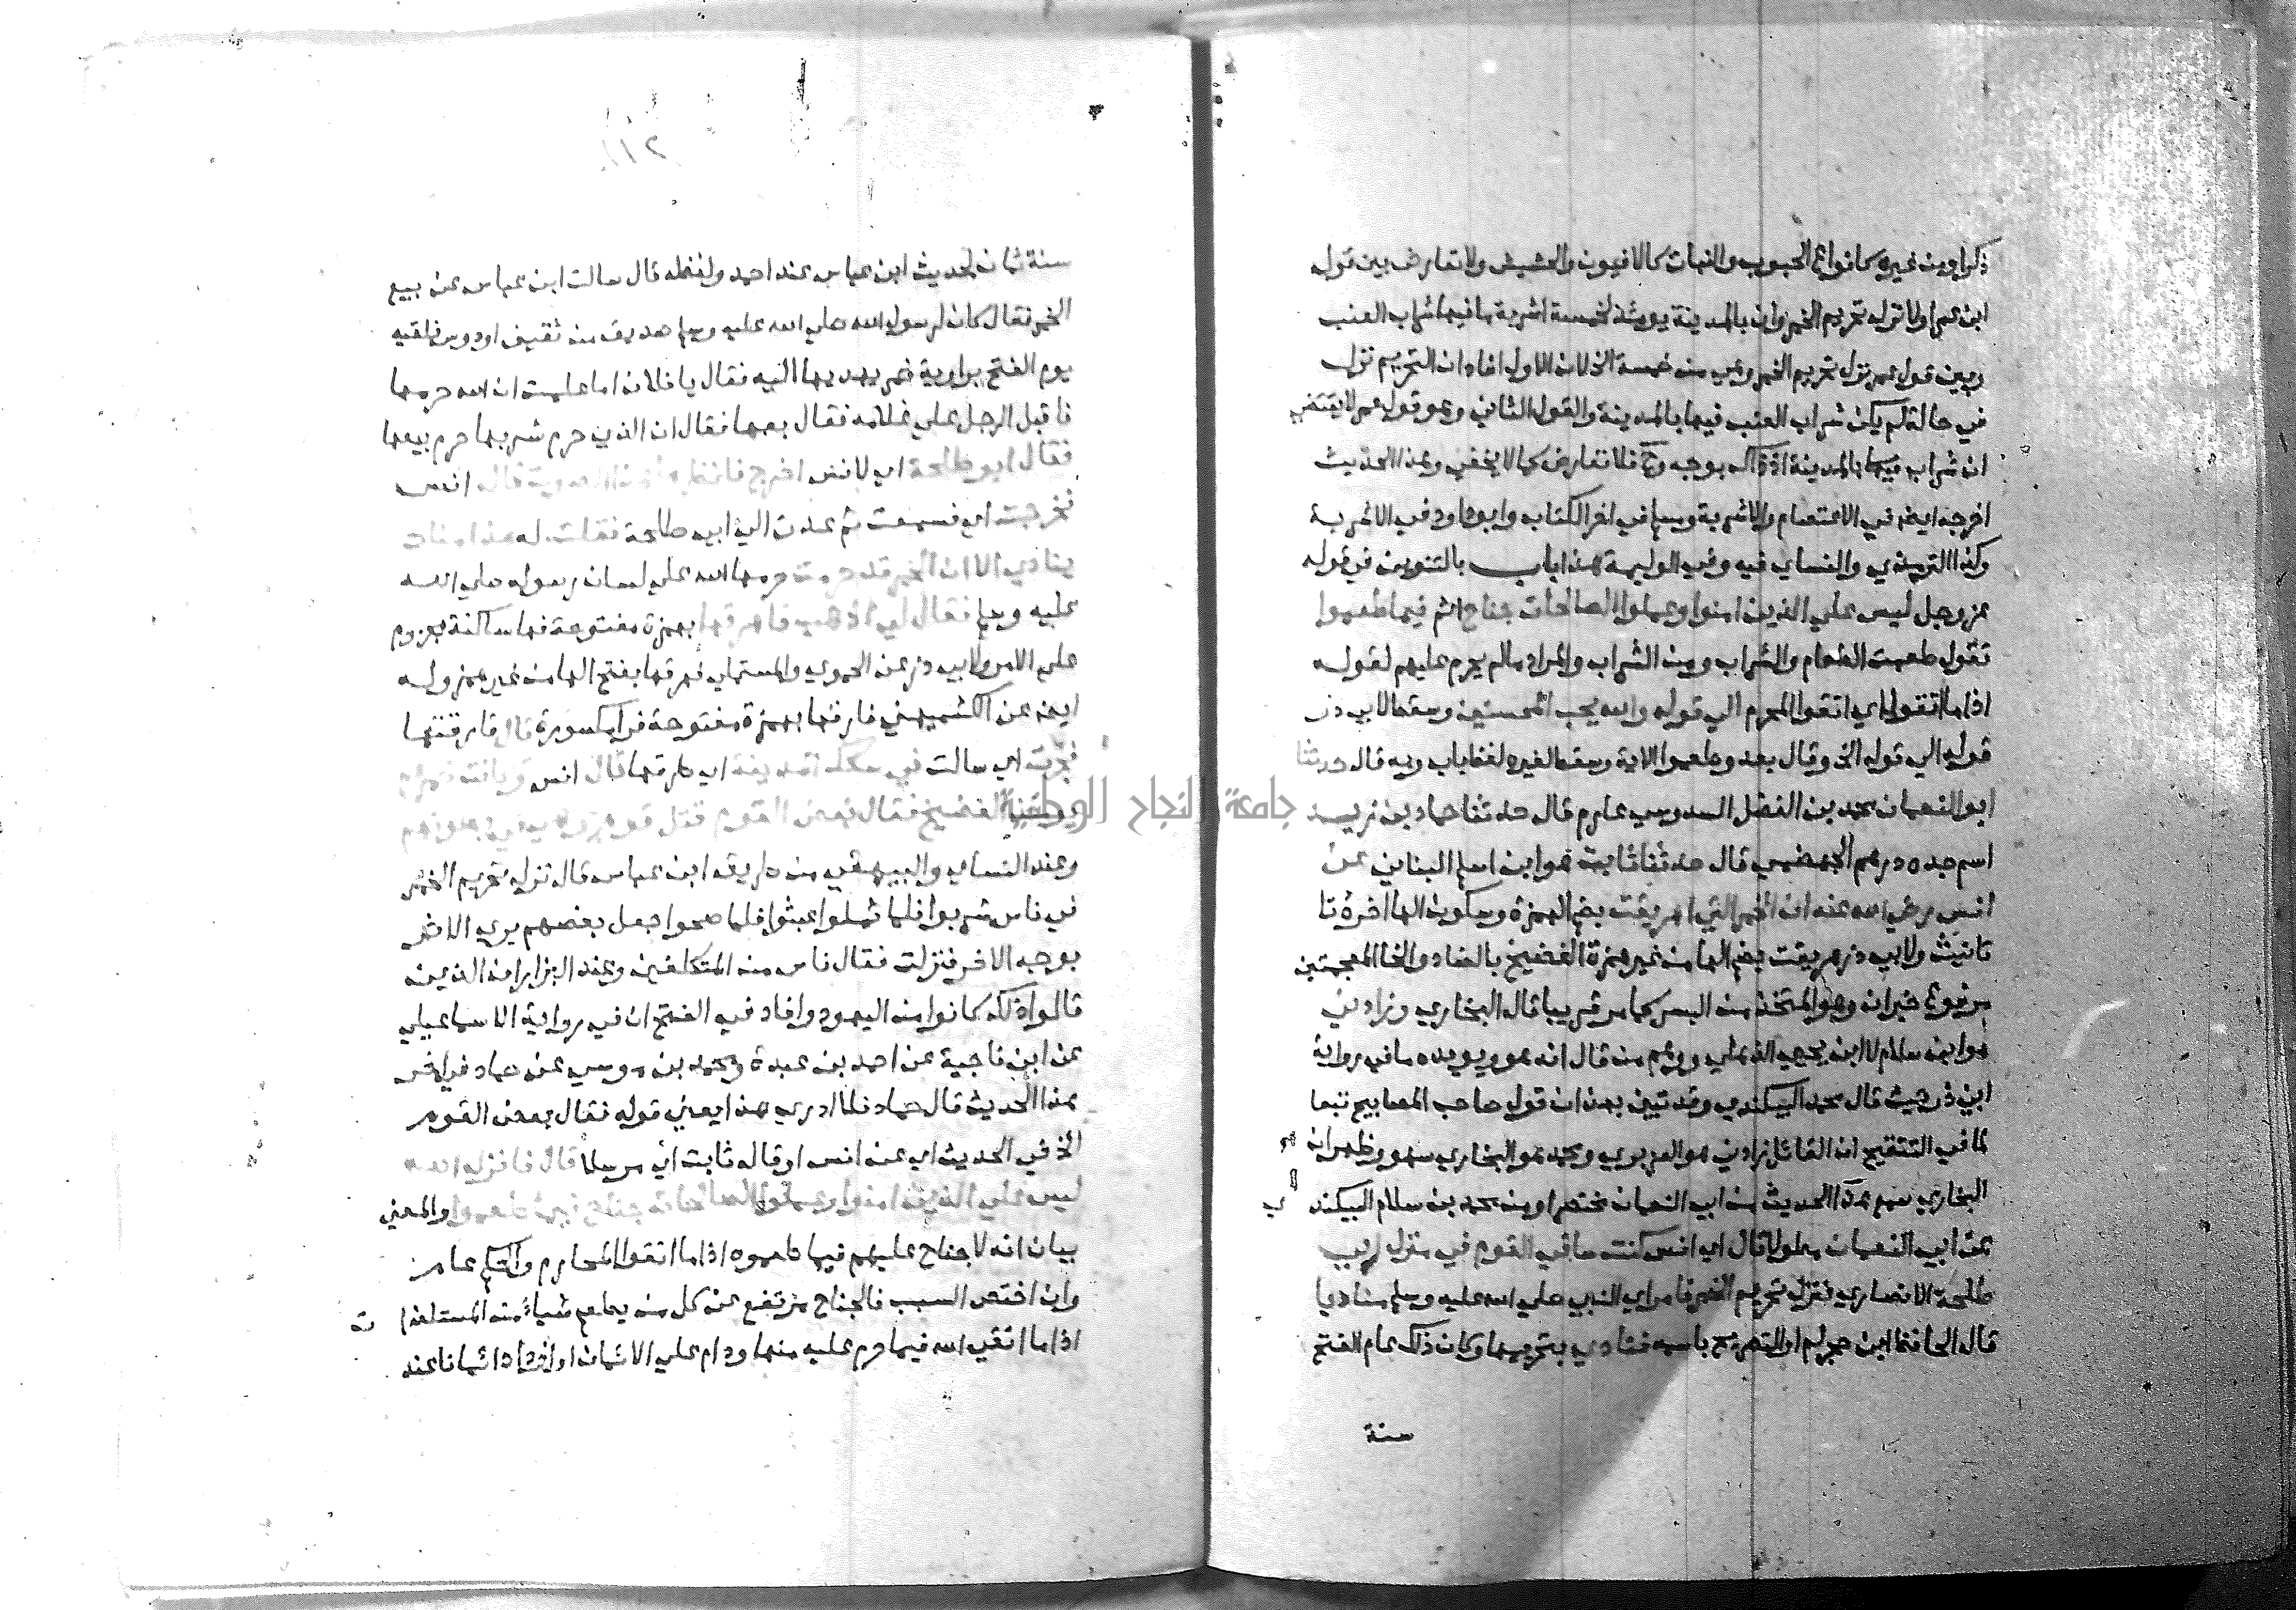 ذكر او من غيره كانواع الحبوب والنبات كالافيون والحشيش ولا تعارض بين قول
ابن عمر اولا نزل تحريم الخمر وان بالمدينة يومئذ لخمسة اشربة ما فيها شراب العنب
وبين قول عمر نزل تحريم الخمر وهي من خمسة الخ لان الاول افاد ان التحريم نزل
في حالة لم يكن شراب العنب فيها بالمدينة والقول الثاني وهو قول عمر لا يقتضي
ان شراب العنب بالمدينة اذ ذاك بوجه وح فلا تعارض كما لا يخفي وهذا الحديث
اخرجه ايضا في الاعتصام والاشربة ومسلم في اخر الكتاب وابو داود في الاشربة
وكذا الترمذي والنساي فيه وفي الوليمة هذا باب بالتنوين في قوله
عز وجل ليس علي الذين امنوا وعملوا الصالحات جناح اثم فيما طعموا
تقول طعمت الطعام والشراب ومن الشراب والمراد مالم يحرم عليهم لقوله
اذا ما اتقوا اي اتقوا المحرم الي قوله والله يحب المحسنين وسقط لابي ذر
قوله الي قوله الخ وقال بعد وطعموا الاية وسقط لغيره لفظ باب وبه قال حدثنا
ابو النعمان محمد بن الفضل السدوسي عارم قال حدثنا حماد بن زيد
اسم جده درهم الجهضمي قال حدثنا ثابت هو ابن اسلم البناني عن
انس رضي الله عنه ان الخمر التي اهريقت بضم الهمزة وسكون الها اخره تا
تانيث ولابي ذر هريقت بضم الها من غير همزة الفضيخ بالضاد والخا المعجمتين
مرفوع خبر ان وهو المتخذ من البسر كما مر قريبا قال البخاري وزادني
هو ابن سلام لا ابن يحيي الذهلي ووهم من قال انه هو ويويده ما في رواية
ابي ذر حيث قال محمد البيكندي وقد تبين بهذا ان قول صاحب المصابيح تبعا
لما في التنقيح ان القائل زادني هو الفربري ومحمد هو البخاري سهو وظهر ان
البخاري سمع هذا الحديث من ابي النعمان مختصرا ومن محمد بن سلام البيكندي
عن ابي النعمان مطولا قال اي انس كنت ساقي القوم في منزل ابي
طلحة الانصاري فنزل تحريم الخمر فامر اي النبي صلي الله عليه وسلم مناديا
قال الحافظ ابن حجر لم ار التصريح باسمه فنادي بتحريمها وكان ذلك عام الفتح
سنة
سنة ثمان لحديث ابن عباس عند احمد ولفظه قال سالت ابن عباس عن بيع
الخمر فقال كان لرسول الله صلي الله عليه وسلم صديق من ثقيف او دوس فلقيه
يوم الفتح براوية خمر يهديها اليه فقال يا فلان اما علمت ان الله حرمها
فاقبل الرجل علي غلامه فقال بعها فقال ان الذي حرم شربها حرم بيعها
فقال ابو طلحة اي لانس اخرج فانظر ما هذا الصوت قال انس
فخرجت اي فسمعت ثم عدت الي ابي طلحة فقلت له هذا مناد
ينادي الا ان الخمر قد حرمت حرمها الله علي لسان رسوله صلي الله
عليه وسلم فقال لي اذهب فاهرقها بهمزة مفتوحة فها ساكنة مجزوم
علي الامر ولابي ذر عن الحموي والمستملي فهرقها بفتح الها من غير همز وله
ايضا عن الكشميهني فارقها بهمزة مفتوحة فرا مكسورة قال فارقتها
فجرت اي سالت في سكك المدينة اي طرقها قال انس وكانت خمرهم
يومئذ الفضيخ فقال بعض القوم قتل قوم وهي في بطونهم
وعند النساي والبيهقي من طريق ابن عباس قال نزل تحريم الخمر
في ناس شربوا فلما ثملوا عبثوا فلما صحوا جعل بعضهم يري الاثر
بوجه الاخر فنزلت فقال ناس من المتكلفين وعند البزار ان الذين
قالوا ذلك كانوا من اليهود وافاد في الفتح ان في رواية الاسماعيلي
عن ابن ناجية عن احمد بن عبدة ومحمد بن موسي عن حماد في اخر
هذا الحديث قال حماد فلا ادري هذا يعني قوله فقال بعض القوم
الخ في الحديث اي عن انس او قاله ثابت اي مرسلا قال فانزل الله
ليس علي الذين امنوا وعملوا الصالحات جناح فيما طعموا والمعني
بيان انه لا جناح عليهم فيما طعموه اذا ما اتقوا المحارم والحكم عام
وان اختص السبب فالجناح مرتفع عن كل من يطعم شيا من المستلذات
اذا ما اتقي الله فيما حرم عليه منها ودام علي الايمان او ازداد ايمانا عند
جامعة النجاح الوطنية